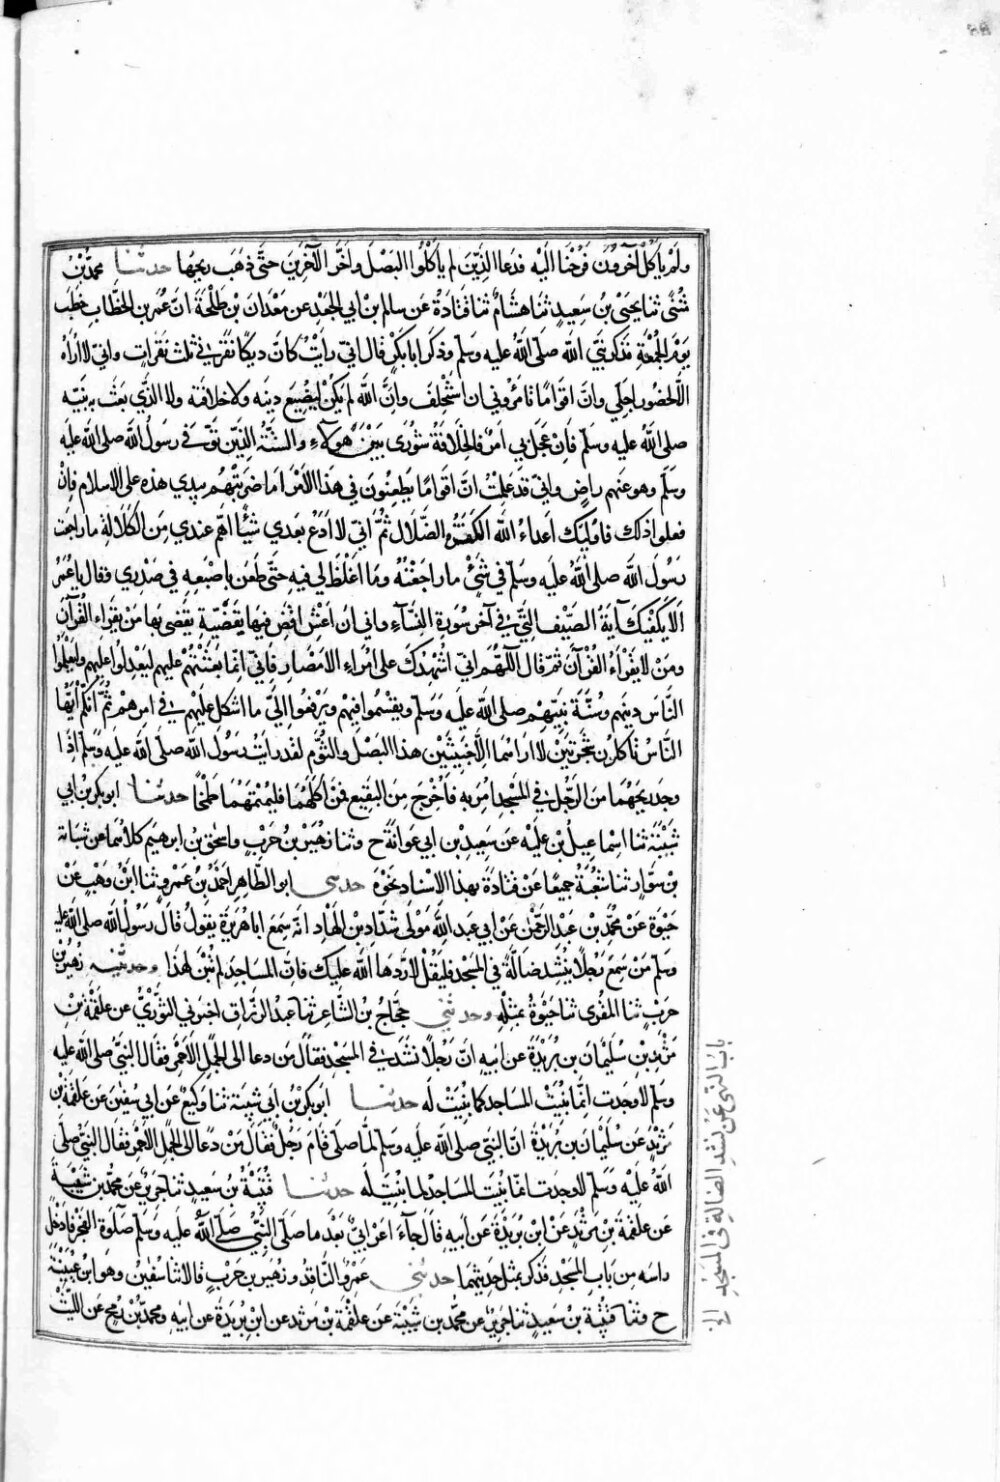 ولم ياكل آخرون فرحنا اليه فدعا الذين لم ياكلوا البصل واخر الآخرين حتى ذهب ريحها حدثنا محمد بن
مثنى ثنا يحيى بن سعيد ثنا هشام ثنا قتادة عن سالم بن ابي الجعد عن معدان بن طلحة ان عمر بن الخطاب خطب
يوم الجمعة فذكر نبي الله صلى الله عليه وسلم وذكر ابا بكر قال اني رايت كان ديكا نقرني ثلث نقرات واني لا أراه
الا لحضور اجلي وان اقواما تامرونني ان استخلف وان الله لم يكن ليضيع دينه ولا خلافته ولا الذي بعث به نبيه
صلى الله عليه وسلم فان عجل بي امر فالخلافة شورى بين هولاء والستة الذين توفي رسول الله صلى الله عليه
وسلم وهو عنهم راض واني قد علمت ان اقواما يطعنون في هذا الأمر انا ضربتهم بيدي هذه على الاسلام فان
فعلوا ذلك فاوليك اعداء الله الكفرة الضلال ثم اني لا ادع بعدي شيئا اهم عندي من الكلالة ما راجعت
رسول الله صلى الله عليه وسلم في شئ ما راجعته وما اغلظ لي فيه حتى طعن باصبعه في صدري فقال يا عمر
الا يكفيك آية الصيف التي في آخر سورة النساء واني ان اعش اقض فيها بقضية يقضي بها من يقراء القرآن
ومن لا يقراء القرآن ثم قال اللهم اني اشهدك على امراء الامصار فاني انما بعثتهم عليهم ليعدلوا عليهم وليعلموا
الناس دينهم وسنة نبيهم صلى الله عليه وسلم ويقسموا فيهم ويرفعوا الي ما اشكل عليهم في امرهم ثم انكم أيها
الناس تاكلون شجرتين لا اراهما الا خبيثين هذا البصل والثوم لقد رايت رسول الله صلى الله عليه وسلم اذا
وجد ريحهما من الرجل في المسجد امر به فاخرج من البقيع فمن اكلهما فليمتهما طبخا حدثنا ابو بكر بن ابي
شيبة ثنا اسماعيل بن علية عن سعيد بن ابي عوانة ح وثنا زهير بن حرب واسحق بن ابرهيم كلاهما عن شبابة
بن سوار ثنا شعبة جميعا عن قتادة بهذا الاسناد نحوه حدثني ابو الطاهر احمد بن عمرو ثنا ابن وهب عن
حيوة عن محمد بن عبد الرحمن عن ابي عبد الله مولى شداد بن الهاد انه سمع ابا هريرة يقول قال رسول الله صلى الله عليه
وسلم من سمع رجلا ينشد ضالة في المسجد فليقل لا ردها الله عليك فان المساجد لم تبن لهذا وحدثنيه زهير بن
حرب ثنا المقرى ثنا حيوة بمثله وحدثني حجاج بن الشاعر ثنا عبد الرزاق اخبرني الثوري عن علقمة بن
مرثد بن سليمان بن بريدة عن ابيه ان رجلا نشد في المسجد فقال من دعا الى الجمل الاحمر فقال النبي صلى الله عليه
وسلم لا وجدت انما بنيت المساجد كما بنيت له حدثنا ابو بكر بن ابي شيبة ثنا وكيع عن ابي سفين عن علقمة بن
مرثد عن سليمان بن بريدة ان النبي صلى الله عليه وسلم لما صلى قام رجل فقال من دعا الى الجمل الاحمر فقال النبي صلى
الله عليه وسلم لا وجدت انما بنيت المساجد لما بنيت له حدثنا قتيبة بن سعيد ثنا جرير عن محمد بن شيبة
عن علقمة بن مرثد عن ابن بريدة عن ابيه قال جاء اعرابي بعد ما صلى النبي صلى الله عليه وسلم صلوة الفجر فادخل
راسه من باب المسجد فذكر بمثل حديثهما حدثني عمرو الناقد وزهير بن حرب قالا ثنا سفين وهو ابن عيينة
ح وثنا قتيبة بن سعيد ثنا جرير عن محمد بن شيبة عن علقمة بن مرثد عن ابن بريدة عن ابيه ومحمد بن رمح عن الليث
باب النهي عن نشد الضالة في المسجد